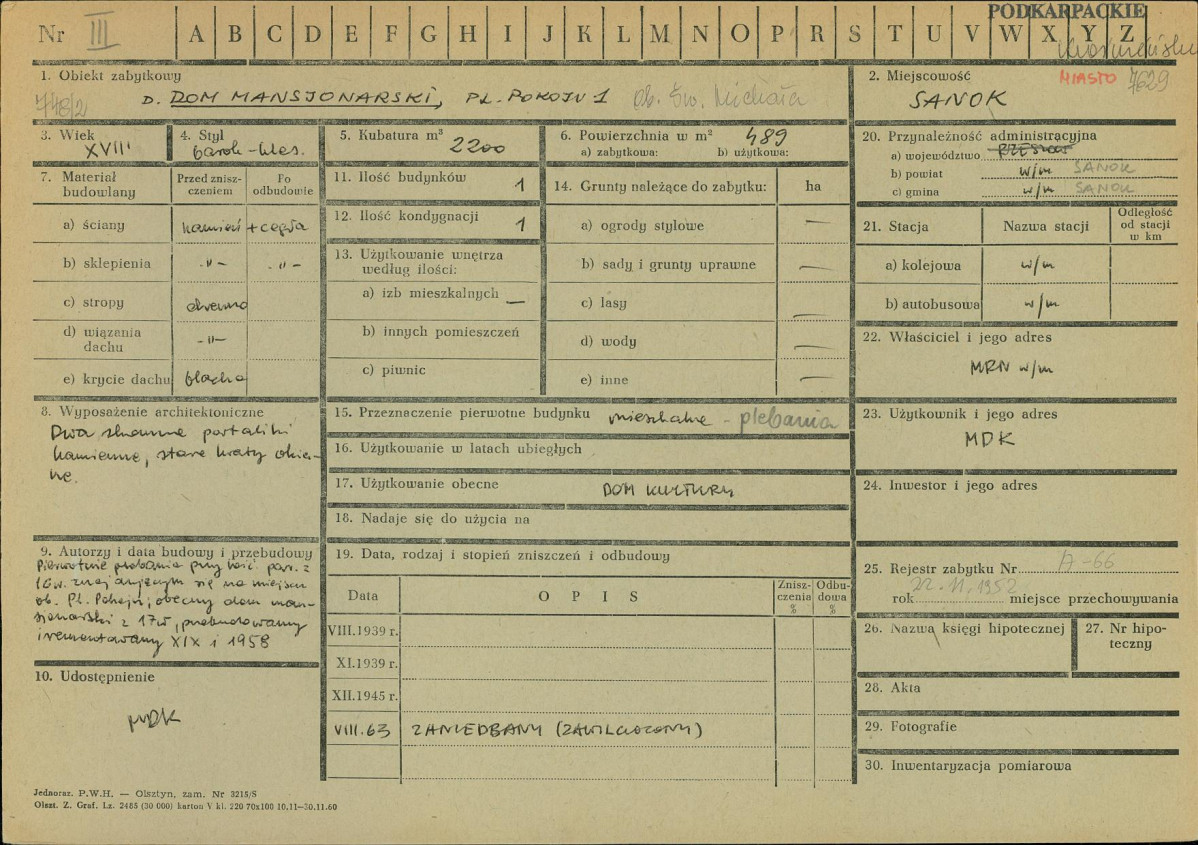 PODKARPACKIE
Nr III A B C D E F G H I J K L M N O P R S T U V W X Y Z
1. Obiekt zabytkowy
748/2
D. DOM MANSJONARSKI, PL. POKOJU 1 ob. Św. Michała
2. Miejscowość MIASTO 7629
SANOK
3. Wiek
XVIII
4. Styl
barok-klas.
5. Kubatura m³
2200
6. Powierzchnia w m² 489
a) zabytkowa: b) użytkowa:
20. Przynależność administracyjna
a) województwo
b) powiat w/m SANOK
c) gmina w/m SANOK
7. Materiał budowlany
Przed zniszczeniem
Po odbudowie
a) ściany kamień + cegła
b) sklepienia -"- -"-
c) stropy
d) wiązania dachu -"-
e) krycie dachu blacha
11. Ilość budynków 1
12. Ilość kondygnacji 1
13. Użytkowanie wnętrza
według ilości:
a) izb mieszkalnych —
b) innych pomieszczeń
c) piwnic
14. Grunty należące do zabytku: ha
a) ogrody stylowe —
b) sady i grunty uprawne —
c) lasy —
d) wody —
e) inne —
21. Stacja
Nazwa stacji
Odległość od stacji w km
a) kolejowa w/m
b) autobusowa w/m
22. Właściciel i jego adres
MRN w/m
8. Wyposażenie architektoniczne
Dwa skromne portaliki
kamienne, stare kraty okien-
ne.
15. Przeznaczenie pierwotne budynku mieszkalne - plebania
16. Użytkowanie w latach ubiegłych
17. Użytkowanie obecne DOM KULTURY
18. Nadaje się do użycia na
23. Użytkownik i jego adres
MDK
24. Inwestor i jego adres
9. Autorzy i data budowy i przebudowy
Pierwotnie plebania przy kośc. par. z
16w. znajdującym się na miejscu
ob. Pl. Pokoju; obecny dom man-
sjonarski z 17w, przebudowany
i remontowany XIX i 1958
19. Data, rodzaj i stopień zniszczeń i odbudowy
Data
OPIS
Zniszczenia %
Odbudowa %
VIII.1939 r.
XI.1939 r.
XII.1945 r.
VIII.63 ZANIEDBANY (ZAWILGOCONY)
25. Rejestr zabytku Nr A-66
rok 22.11.1952 miejsce przechowywania
26. Nazwa księgi hipotecznej
27. Nr hipoteczny
10. Udostępnienie
MDK
28. Akta
29. Fotografie
30. Inwentaryzacja pomiarowa
Jednoraz. P.W.H. — Olsztyn, zam. Nr 3215/S
Olszt. Z. Graf. Lz. 2485 (30 000) karton V kl. 220 70x100 10.11—30.11.60